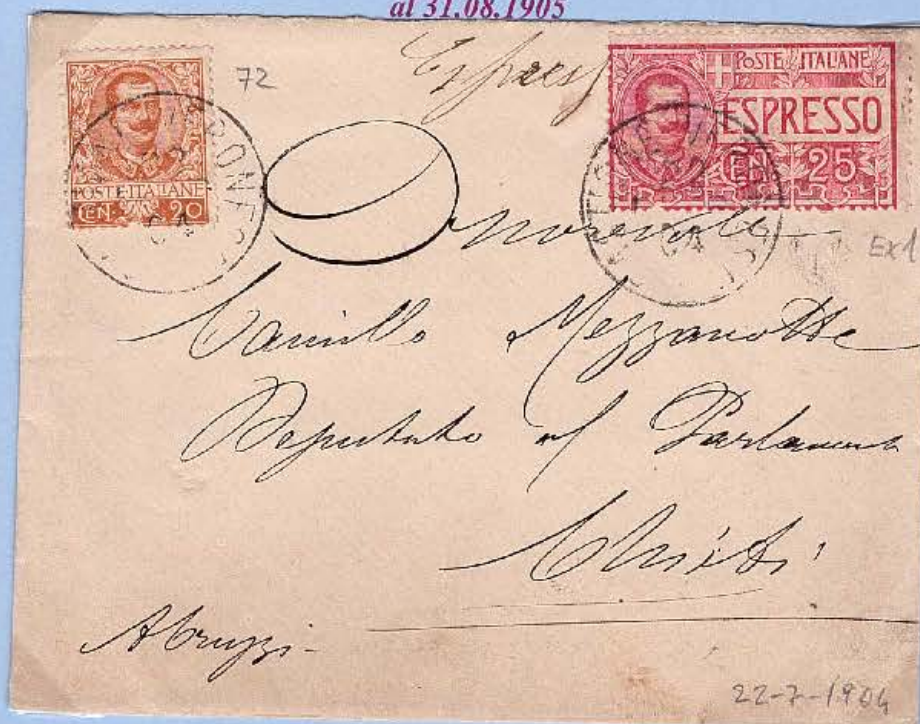 al 31.08.1905
72
Espresso
POSTE ITALIANE
ESPRESSO
CEN 25
POSTE·ITALIANE
CEN· 20
04
04
Ex1
Onorevole
Camillo Mezzanotte
Deputato al Parlamento
Chieti
Abruzzi
22-7-1904